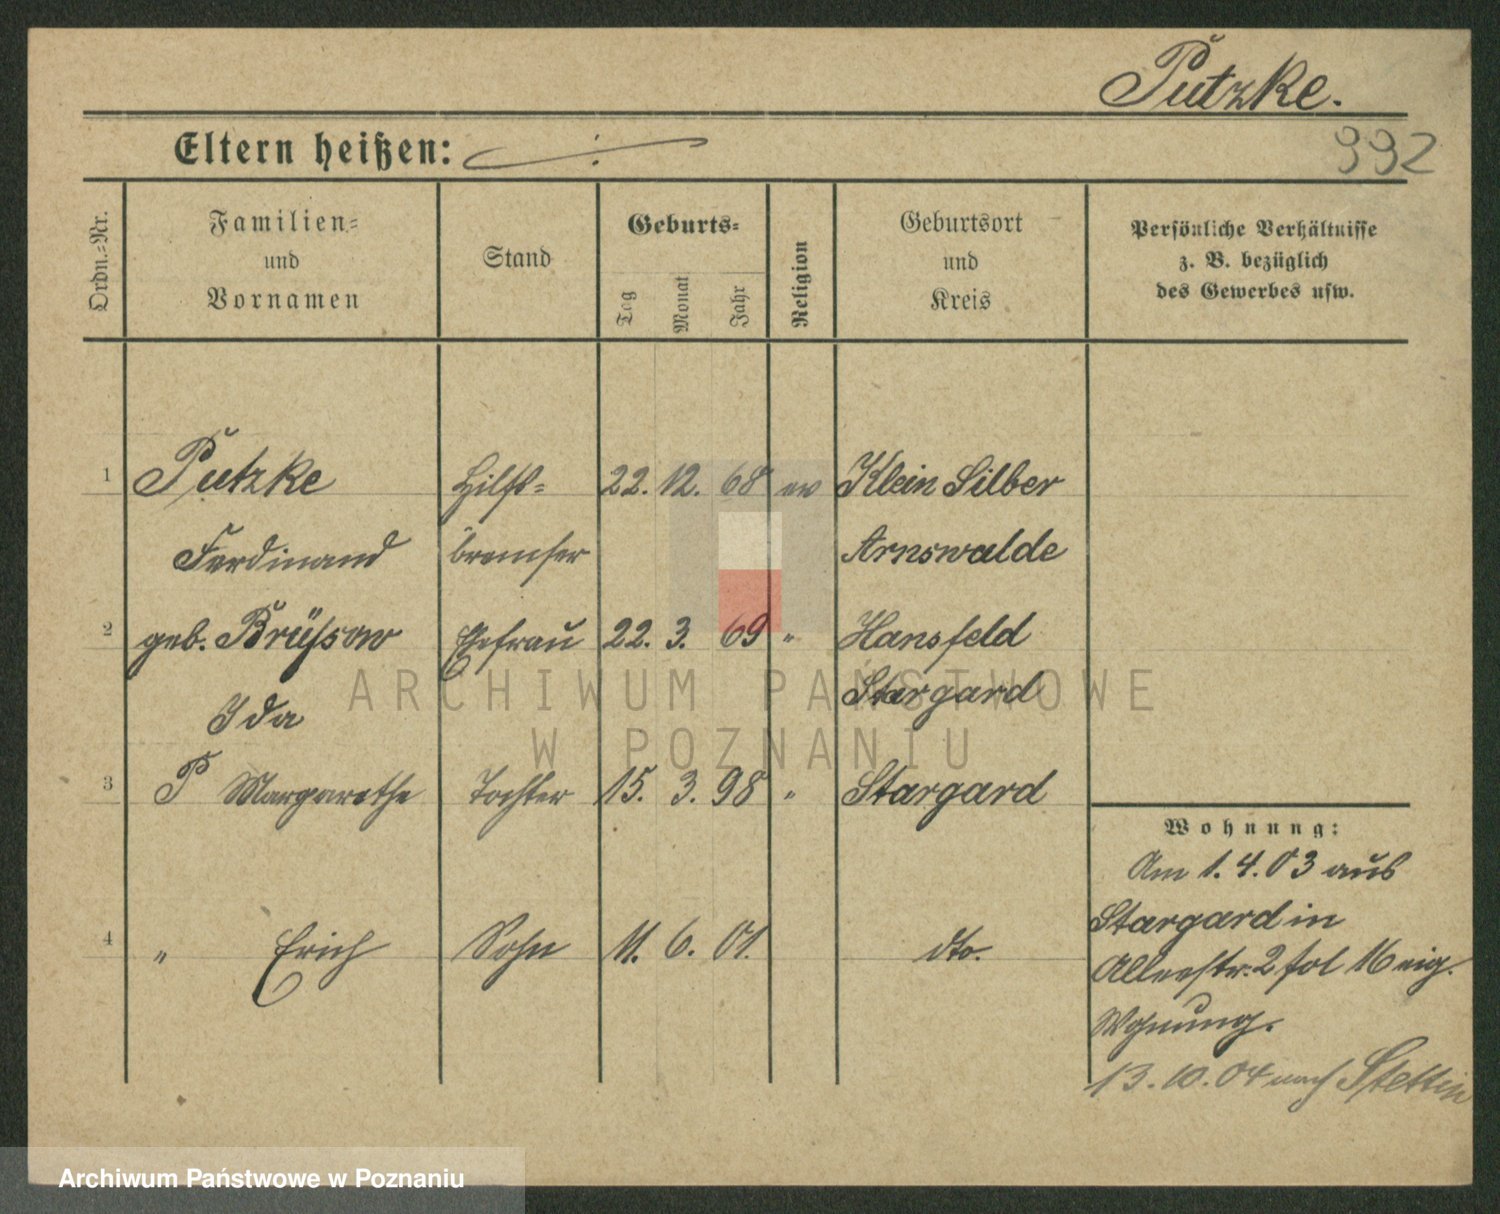 Putzke.
992
Eltern heißen:
Ordn.-Nr.
Familien-
und
Vornamen
Stand
Geburts-
Tag
Monat
Jahr
Religion
Geburtsort
und
Kreis
Persönliche Verhältnisse
z. B. bezüglich
des Gewerbes usw.
1 Putzke Hilfs- 22. 12. 68 ev Klein Silber
Ferdinand bremser Arnswalde
2 geb. Brüssow Ehefrau 22. 3. 69 " Hansfeld
Ida Stargard
3 P Margarethe Tochter 15. 3. 98 " Stargard
4 " Erich Sohn 11. 6. 01. dto.
Wohnung:
Am 1.4.03 aus
Stargard in
Alleestr. 2 fol 16 eig.
Wohnung.
13.10.04 nach Stettin
ARCHIWUM PAŃSTWOWE
W POZNANIU
Archiwum Państwowe w Poznaniu